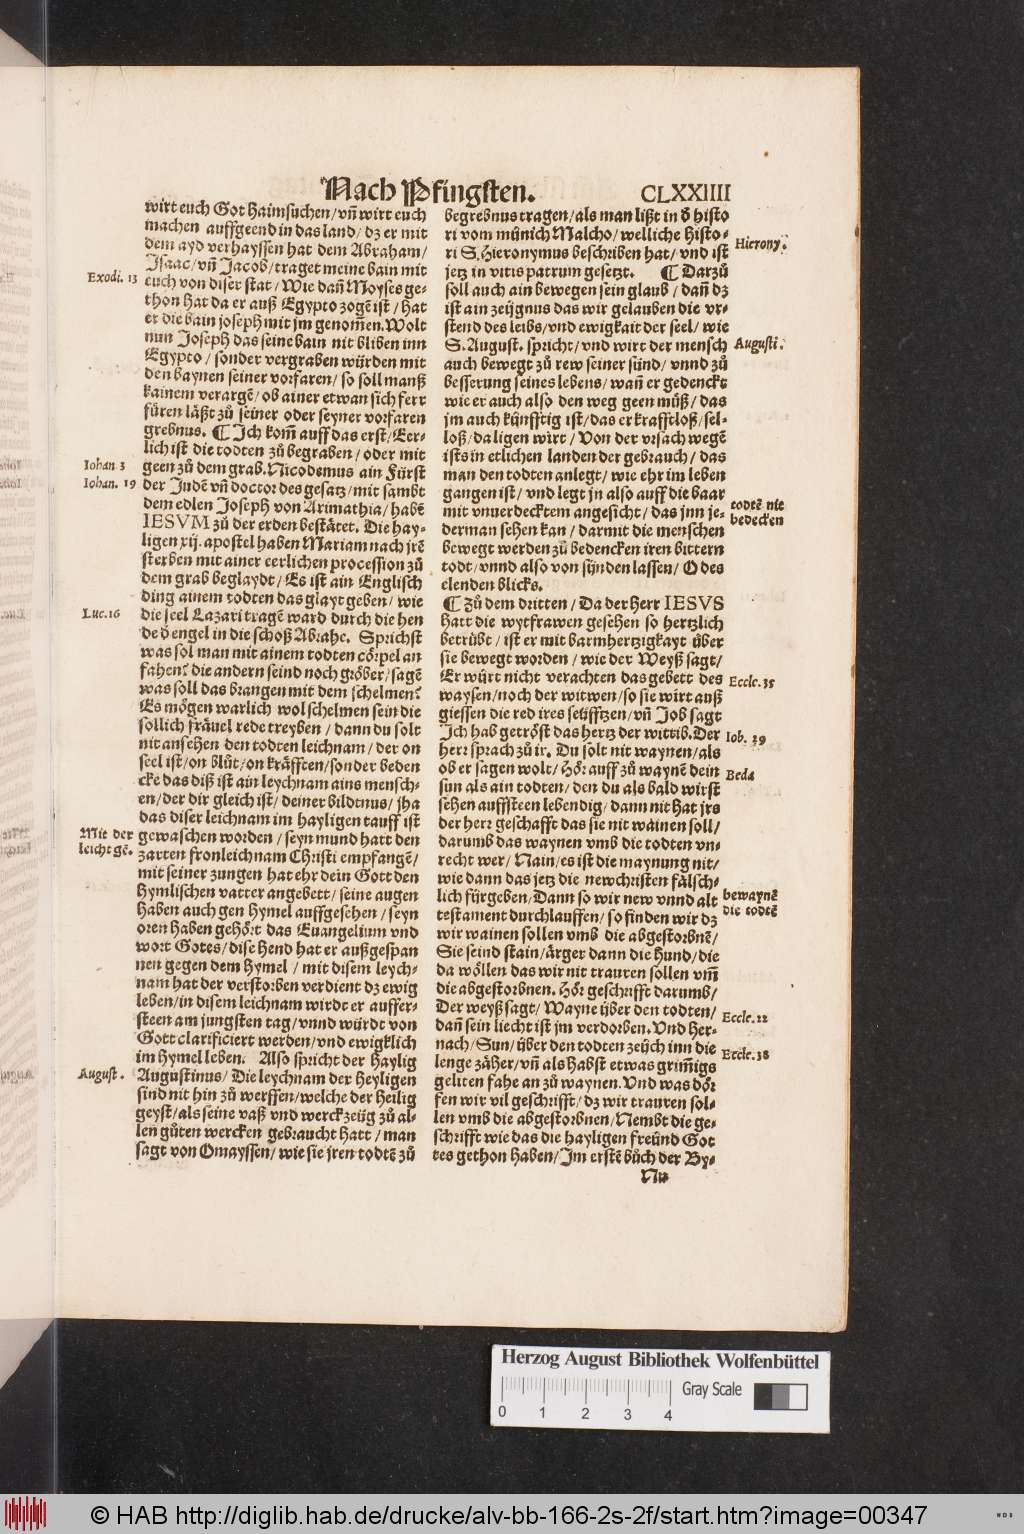 Nach Pfingsten. CLXXIIII
wirt euch Got haimsuchen/vñ wirt euch
machen auffgeend in das land/dz er mit
dem ayd verhayssen hat dem Abraham/
Isaac/vñ Jacob/traget meine bain mit
Exodi. 13
euch von diser stat/Wie dañ Moyses ge-
thon hat da er auß Egypto zogẽ ist/hat
er die bain joseph mit jm genom̃en. Wolt
nun Joseph das seine bain nit bliben inn
Egypto/sonder vergraben würden mit
den baynen seiner vorfaren/so soll manß
kainem verargẽ/ob ainer etwan sich ferr
füren läßt zů seiner oder seyner vorfaren
grebnus. ¶ Ich kom̃ auff das erst/Eer-
lich ist die todten zů begraben/oder mit
Iohan 3
geen zů dem grab. Nicodemus ain Fürst
Iohan. 19
der Judẽ vñ doctor des gesatz/mit sampt
dem edlen Joseph von Arimathia/habẽ
IESVM zů der erden bestätet. Die hay-
ligen xij. apostel haben Mariam nach jrẽ
sterben mit ainer eerlichen procession zů
dem grab beglaydt/Es ist ain Englisch
ding ainem todten das glayt geben/wie
Luc. 16
die seel Lazari tragẽ ward durch die hen
de d̕ engel in die schoß Abrahe. Sprichst
was sol man mit ainem todten cörpel an
fahen? die andern seind noch gröber/sagẽ
was soll das brangen mit dem schelmen?
Es mögen warlich wol schelmen sein die
sollich fräuel rede treyben/dann du solt
nit ansehen den todten leichnam/der on
seel ist/on blůt/on kräfften/sonder beden
cke das diß ist ain leychnam ains mensch-
en/der dir gleich ist/deiner bildtnus/jha
das diser leichnam im hayligen tauff ist
Mit der
leicht gẽ.
gewaschen worden/seyn mund hatt den
zarten fronleichnam Christi empfangẽ/
mit seiner zungen hat ehr dein Gott den
hymlischen vatter angebett/seine augen
haben auch gen hymel auffgesehen/seyn
oren haben gehört das Euangelium vnd
wort Gotes/dise hend hat er außgespan
nen gegen dem hymel/mit disem leych-
nam hat der verstorben verdient dz ewig
leben/in disem leichnam wirdt er auffer-
steen am jungsten tag/vnnd würdt von
Gott clarificiert werden/vnd ewigklich
im hymel leben. Also spricht der haylig
August.
Augustinus/Die leychnam der heyligen
sind nit hin zů werffen/welche der heilig
geyst/als seine vaß vnd werckzeüg zů al-
len gůten wercken gebraucht hatt/man
sagt von Omayssen/wie sie jren todtẽ zů
begrebnus tragen/als man lißt in d̕ histo
ri vom münich Malcho/welliche histo-
Hierony.
ri S. Hieronymus beschriben hat/vnd ist
jetz in vitis patrum gesetzt. ¶ Darzů
soll auch ain bewegen sein glaub/dañ dz
ist ain zeügnus das wir gelauben die vr-
stend des leibs/vnd ewigkait der seel/wie
Augusti.
S. August. spricht/vnd wirt der mensch
auch bewegt zů rew seiner sünd/vnnd zů
besserung seines lebens/wañ er gedenckt
wie er auch also den weg geen můß/das
jm auch künfftig ist/das er krafftloß/sel-
loß/da ligen wirt/Von der vrsach wegẽ
ists in etlichen landen der gebrauch/das
man den todten anlegt/wie ehr im leben
gangen ist/vnd legt jn also auff die baar
todtẽ nit
bedecken
mit vnuerdecktem angesicht/das jnn je-
derman sehen kan/darmit die menschen
bewegt werden zů bedencken iren bittern
todt/vnnd also von sünden lassen/O des
elenden blicks.
¶ Zů dem dritten/Da der herr IESVS
hatt die wytfrawen gesehen so hertzlich
betrübt/ist er mit barmhertzigkayt über
sie bewegt worden/wie der Weyß sagt/
Eccle. 35
Er würt nicht verachten das gebett des
waysen/noch der witwen/so sie wirt auß
giessen die red ires seüfftzen/vñ Job sagt
Iob. 29
Ich hab getröst das hertz der wittib. Der
herr sprach zů ir. Du solt nit waynen/als
Beda
ob er sagen wolt/hör auff zů waynẽ dein
sun als ain todten/den du als bald wirst
sehen auffsteen lebendig/dann nit hat jrs
der herr geschafft das sie nit wainen soll/
darumb das waynen vmb die todten vn-
recht wer/Nain/es ist die maynung nit/
wie dann das jetz die newchristen fälsch-
bewaynẽ
die todtẽ
lich fürgeben/Dann so wir new vnnd alt
testament durchlauffen/so finden wir dz
wir wainen sollen vmb die abgestorbnẽ/
Sie seind stain/ärger dann die hund/die
da wöllen das wir nit trauren sollen vm̃
die abgestorbnen. Hör geschrifft darumb/
Eccle. 22
Der weyß sagt/Wayne über den todten/
dañ sein liecht ist jm verdorben. Vnd her-
nach/Sun/über den todten zeüch inn die
Eccle. 38
lenge zäher/vñ als habst etwas grim̃igs
geliten fahe an zů waynen. Vnd was dör
fen wir vil geschrifft/dz wir trauren sol-
len vmb die abgestorbnen/Nembt die ge-
schrifft wie das die hayligen freünd Got
tes gethon haben/Im erstẽ bůch der By-
Nu
Herzog August Bibliothek Wolfenbüttel
0 1 2 3 4
Gray Scale
© HAB http://diglib.hab.de/drucke/alv-bb-166-2s-2f/start.htm?image=00347